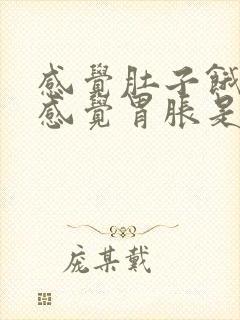 感覺肚子餓
感覺胃脹是
庞某戴